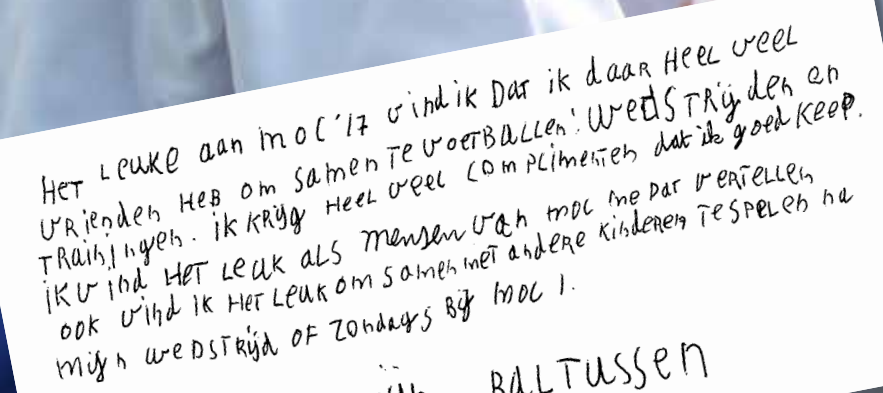 HET LEUKE aan MOC '17 vind ik DAT ik daar HEEL veel
vrienden HEB om samen TE VOETBALLEN: WEDSTRijden en
TRainingen. ik KRijg HEEL veel COMPLimenten dat ik goed KEEP.
ik vind HET LEUK ALS mensen van MOC me DAT VERTELLEN
ook vind ik HET LEUK om samen met andere KindEREN TE SPELEN na
mijn WEDSTRijd OF Zondags Bij MOC 1.
BALTUSSEN